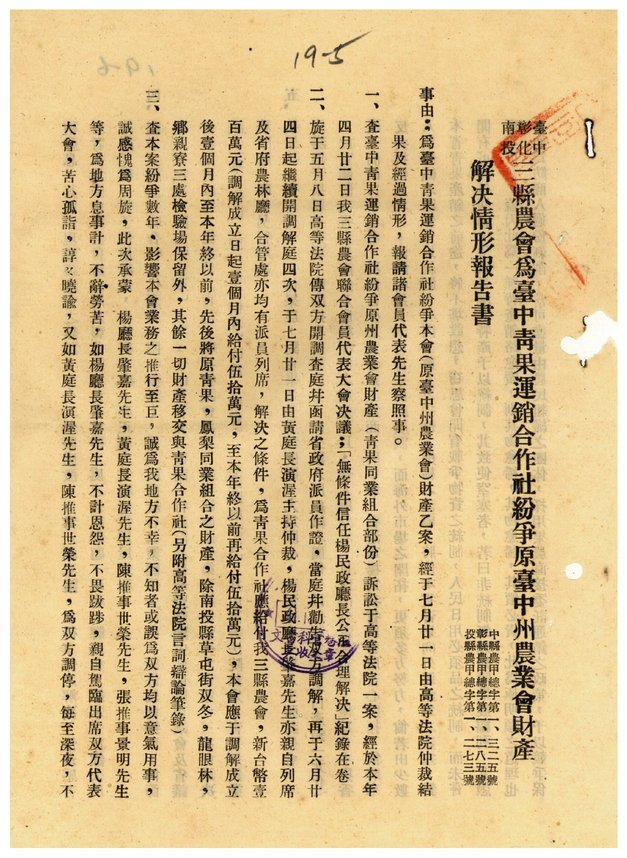 19-5
臺中
彰化
南投
三縣農會爲臺中靑果運銷合作社紛爭原臺中州農業會財產
解决情形報告書
中縣農甲總字第一、三二五號
彰縣農甲總字第一、二八五號
投縣農甲總字第一、二七三號
事由：爲臺中靑果運銷合作社紛爭本會（原臺中州農業會）財產乙案，經于七月廿一日由高等法院仲裁結
果及經過情形，報請諸會員代表先生察照事。
一、查臺中靑果運銷合作社紛爭原州農業會財產（靑果同業組合部份）訴訟于高等法院一案，經於本年
四月廿二日我三縣農會聯合會員代表大會决議；「無條件信任楊民政廳長公正合理解决」紀錄在卷
二、旋于五月八日高等法院傳双方開調查庭幷函請省政府派員作證，當庭幷勸告双方調解，再于六月廿
四日起繼續開調解庭四次，于七月廿一日由黃庭長演渥主持仲裁，楊民政廳長肇嘉先生亦親自列席
及省府農林廳，合管處亦均有派員列席，解决之條件，爲靑果合作社應給付我三縣農會，新台幣壹
百萬元（調解成立日起壹個月內給付伍拾萬元，至本年終以前再給付伍拾萬元），本會應于調解成立
後壹個月內至本年終以前，先後將原靑果，鳳梨同業組合之財產，除南投縣草屯街双冬，龍眼林，
鄉親寮三處檢驗場保留外，其餘一切財產移交與靑果合作社（另附高等法院言詞辯論筆錄）
三、查本案紛爭數年，影響本會業務之推行至巨，誠爲我地方不幸，不知者或誤爲双方均以意氣用事，
誠感愧爲周旋，此次承蒙　楊廳長肇嘉先生，黃庭長演渥先生，陳推事世榮先生，張推事景明先生
等，爲地方息事計，不辭勞苦，如楊廳長肇嘉先生，不計恩怨，不畏跋跡，親自駕臨出席双方代表
大會，苦心孤詣，諄々曉諭，又如黃庭長演渥先生，陳推事世榮先生，爲双方調停，每至深夜，不